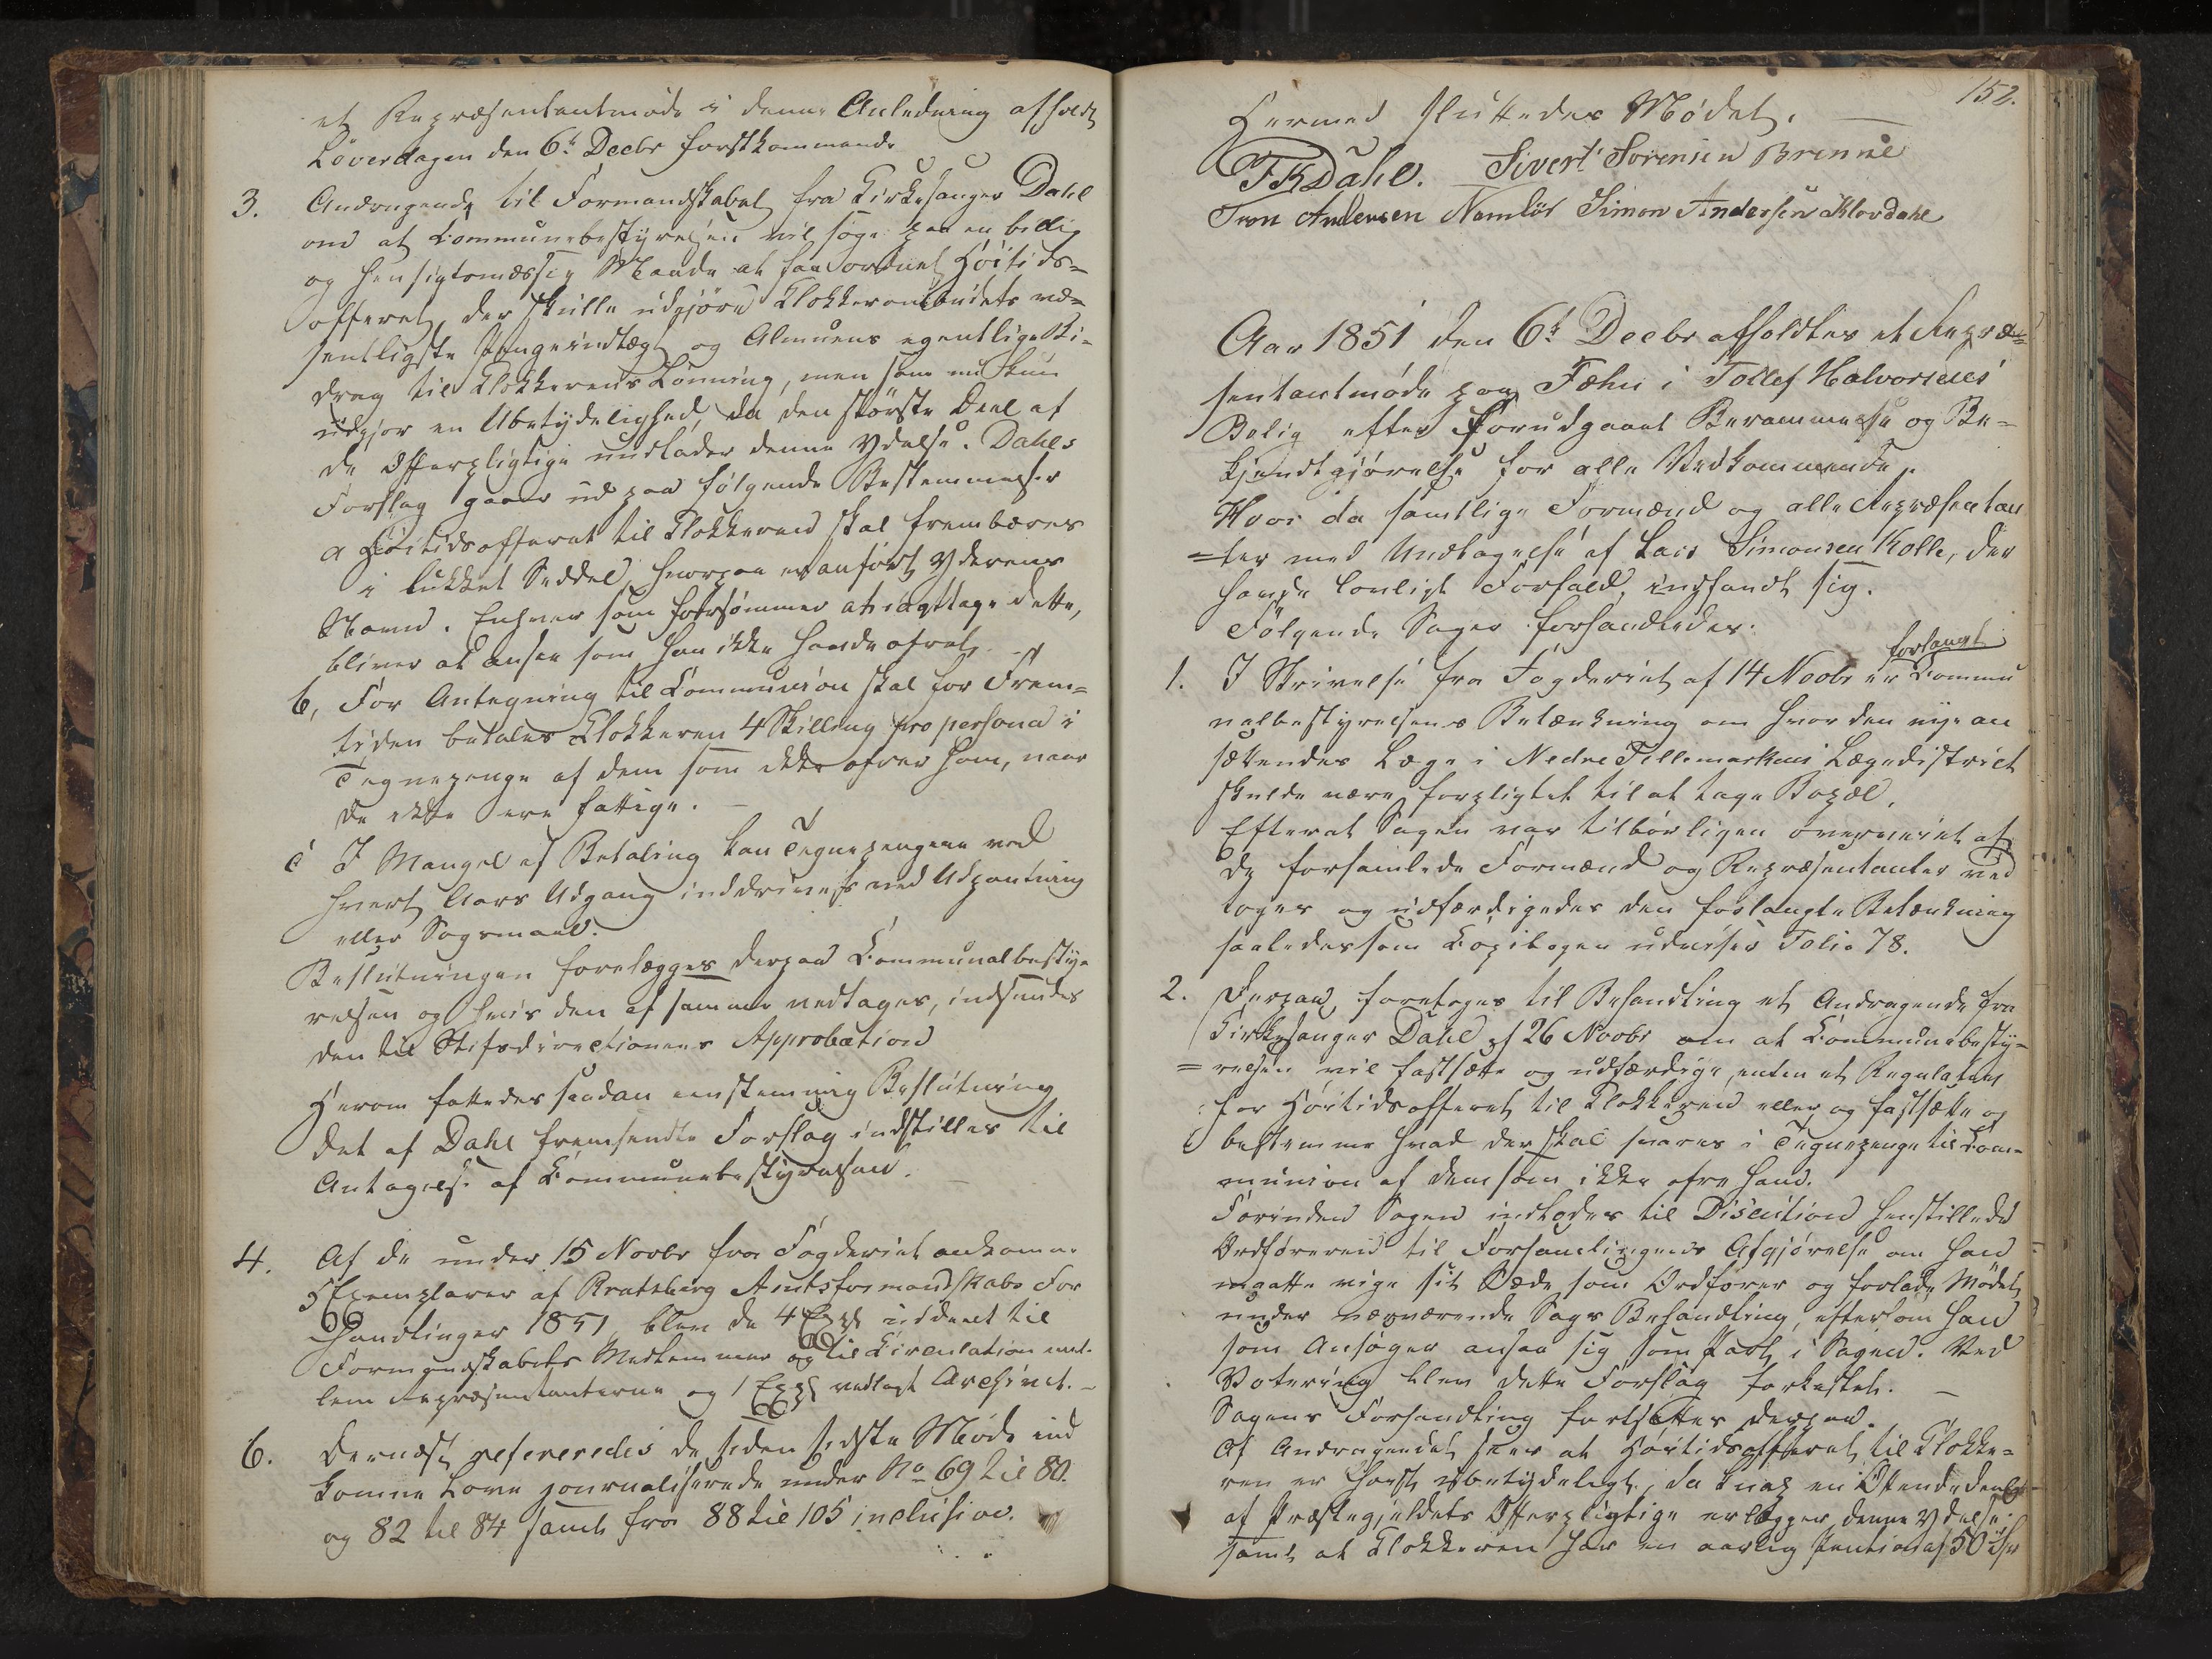 et Repræsentantmøde i denne Anledning afholdt
Løverdagen den 6t Decbr førstkommende
3. Andragende til Formandskabet fra Kirkesanger Dahl
om at Communebestyrelsen vil søge paa en billig
og hensigtsmæssig Maade at faa ordnet Høitids=
offeret, der skulle udgjøre Klokkerombudets væ=
sentligste Pengeindtægt og Almuens egentlige Bi=
drag til Klokkerens Lønning, men som nu kun
udgjør en Ubetydelighed, da den største Deel af
de Offerpligtige undlader denne Ydelse. Dahls
Forslag gaaer ud paa følgende Bestemmelser
a Høitidsofferet til Klokkeren skal frembæres
i lukket Seddel, hvorpaa er anført Yderens
Navn. Enhver som forsømmer at iagttage dette,
bliver at ansee som han ikke havde ofret.
b, For Antegning til Communion skal for Frem=
tiden betales Klokkeren 4 Skilling pro persona i
Tegnepenge af dem som ikke ofrer ham, naar
de ikke ere fattige. —
c I Mangel af Betaling kan Tegnepengene ved
hvert Aars Udgang inddrives ved Udpantning
eller Søgsmaal.
Beslutningen forelægges derpaa Communalbesty=
relsen og hvis den af samme vedtages, indsendes
den til Stiftsdirectionens Approbation
Herom fattedes saadan eenstemmig Beslutning
det af Dahl fremsendte Forslag indstilles til
Antagelse af Communebestyrelsen. —
4. Af de under 15 Novbr fra Fogderiet ankomne
5 Exemplarer af Bratsberg Amtsformandskabs For
handlinger 1851, blev de 4 Expl uddeelt til
Formandskabets Medlemmer og til Circulation mel=
lem Repræsentanterne og 1 Expl vedlagt Archivet. —
6. Dernæst refereredes de siden sidste Møde ind
komne Love journaliserede under No 69 til 80.
og 82 til 84 samt fra 88 til 105 inclusive.
152.
Hermed sluttedes Mødet. —
TKDahl. Sivert Sørensen Brenne
Tron Andersen Namløs Simon Andersen Klovdahl
Aar 1851 den 6t Decbr afholdtes et Repræ=
sentantmøde paa Fæhn i Tollef Halvorsens
Bolig efter forudgaaet Berammelse og Be=
kjendtgjørelse for alle Vedkommende.
Hvor da samtlige Formænd og alle Repræsentan
=ter med Undtagelse af Lars Simonsen Kolle, der
havde lovligt Forfald, indfandt sig.
Følgende Sager forhandledes:
forlangt
1. I Skrivelse fra Fogderiet af 14 Novbr er Commu
nalbestyrelsens Betænkning om hvor den nye an
sættendes Læge i Nedre Tellemarkens Lægedistrict
skulde være forpligtet til at tage Bopæl.
Efterat Sagen var tilbørligen overveiet af
de forsamlede Formænd og Repræsentanter ved
toges og udfærdigedes den forlangte Betænkning
saaledes som Copibogen udviser Folio 78.
2. Derpaa foretoges til Behandling et Andragende fra
Kirkesanger Dahl af 26 Novbr om at Communebesty=
=relsen vil fastsætte og udfærdige, enten et Regulativ
for Høitidsofferet til Klokkeren eller og fastsætte og
bestemme hvad der skal svares i Tegnepenge til Com=
munion af dem som ikke ofre ham.
Forinden Sagen indtoges til Discution henstillede
Ordføreren til Forsamlingens Afgjørelse om han
maatte vige sit Sæde som Ordfører og forlade Mødet
under nærværende Sags Behandling, eftersom han
som Ansøger ansaa sig som Part i Sagen. Ved
Votering blev dette Forslag forkastet. —
Sagens Forhandling fortsættes derpaa.
Af Andragendet sees at Høitidsofferet til Klokke=
ren er høist ubetydeligt, da knap en Ottendedeel
af Præstegjeldets Offerpligtige erlægger denne Ydelse
samt at Klokkeren har en aarlig Pention af 50 Spd